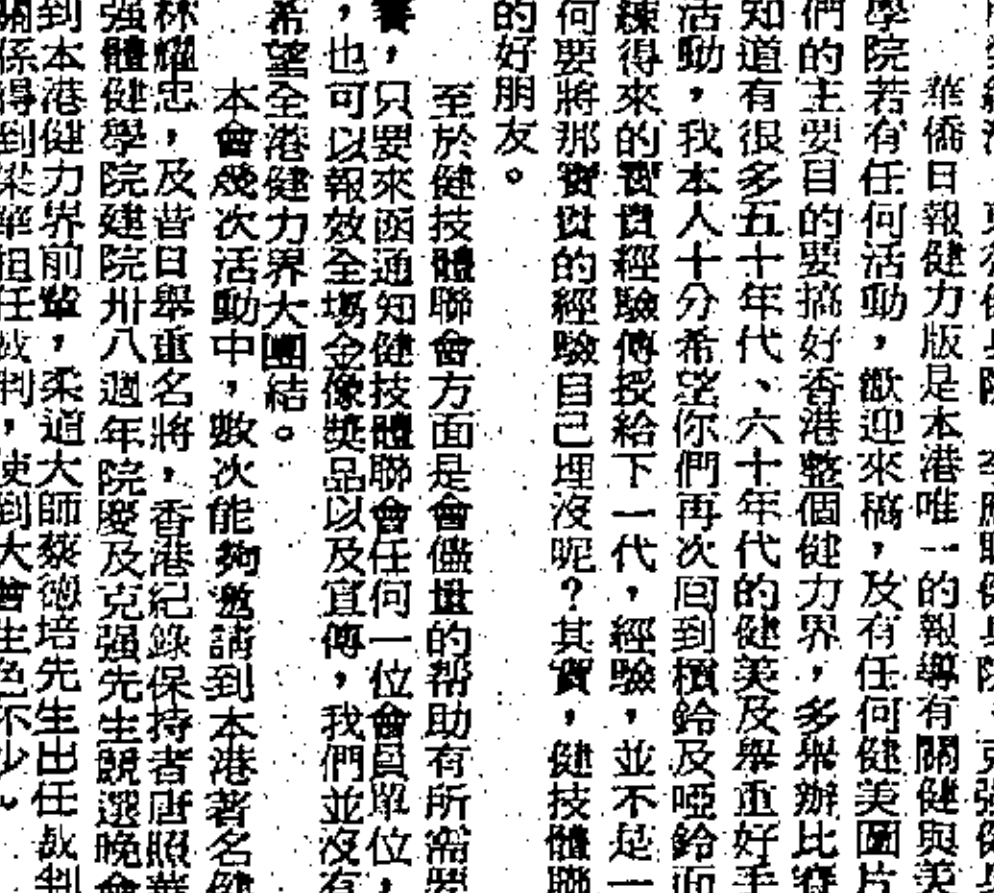 華僑日報健力版是本港唯一的報導有關健與美
學院若有任何活動，歡迎來稿，及有任何健美圖片
們的主要目的要搞好香港整個健力界，多舉辦比賽
知道有很多五十年代、六十年代的健美及舉重好手
活動，我本人十分希望你們再次回到檳鈴及啞鈴而
練得來的寶貴經驗傳授給下一代，經驗，並不是一
何要將那寶貴的經驗自己埋沒呢？其實，健技體聯
的好朋友。
至於健技體聯會方面是會儘量的帮助有所需要
，只要來函通知健技體聯會任何一位會員單位，
，也可以報效全場金像獎品以及宣傳，我們並沒有
希望全港健力界大團結。
本會幾次活動中，數次能夠邀請到本港著名健
林耀忠，及昔日舉重名將，香港紀錄保持者唐照華
强體健學院建院卅八週年院慶及克强先生競選晚會
到本港健力界前輩，柔道大師蔡德培先生出任裁判
關係得到梁華担任裁判，使到大會生色不少。